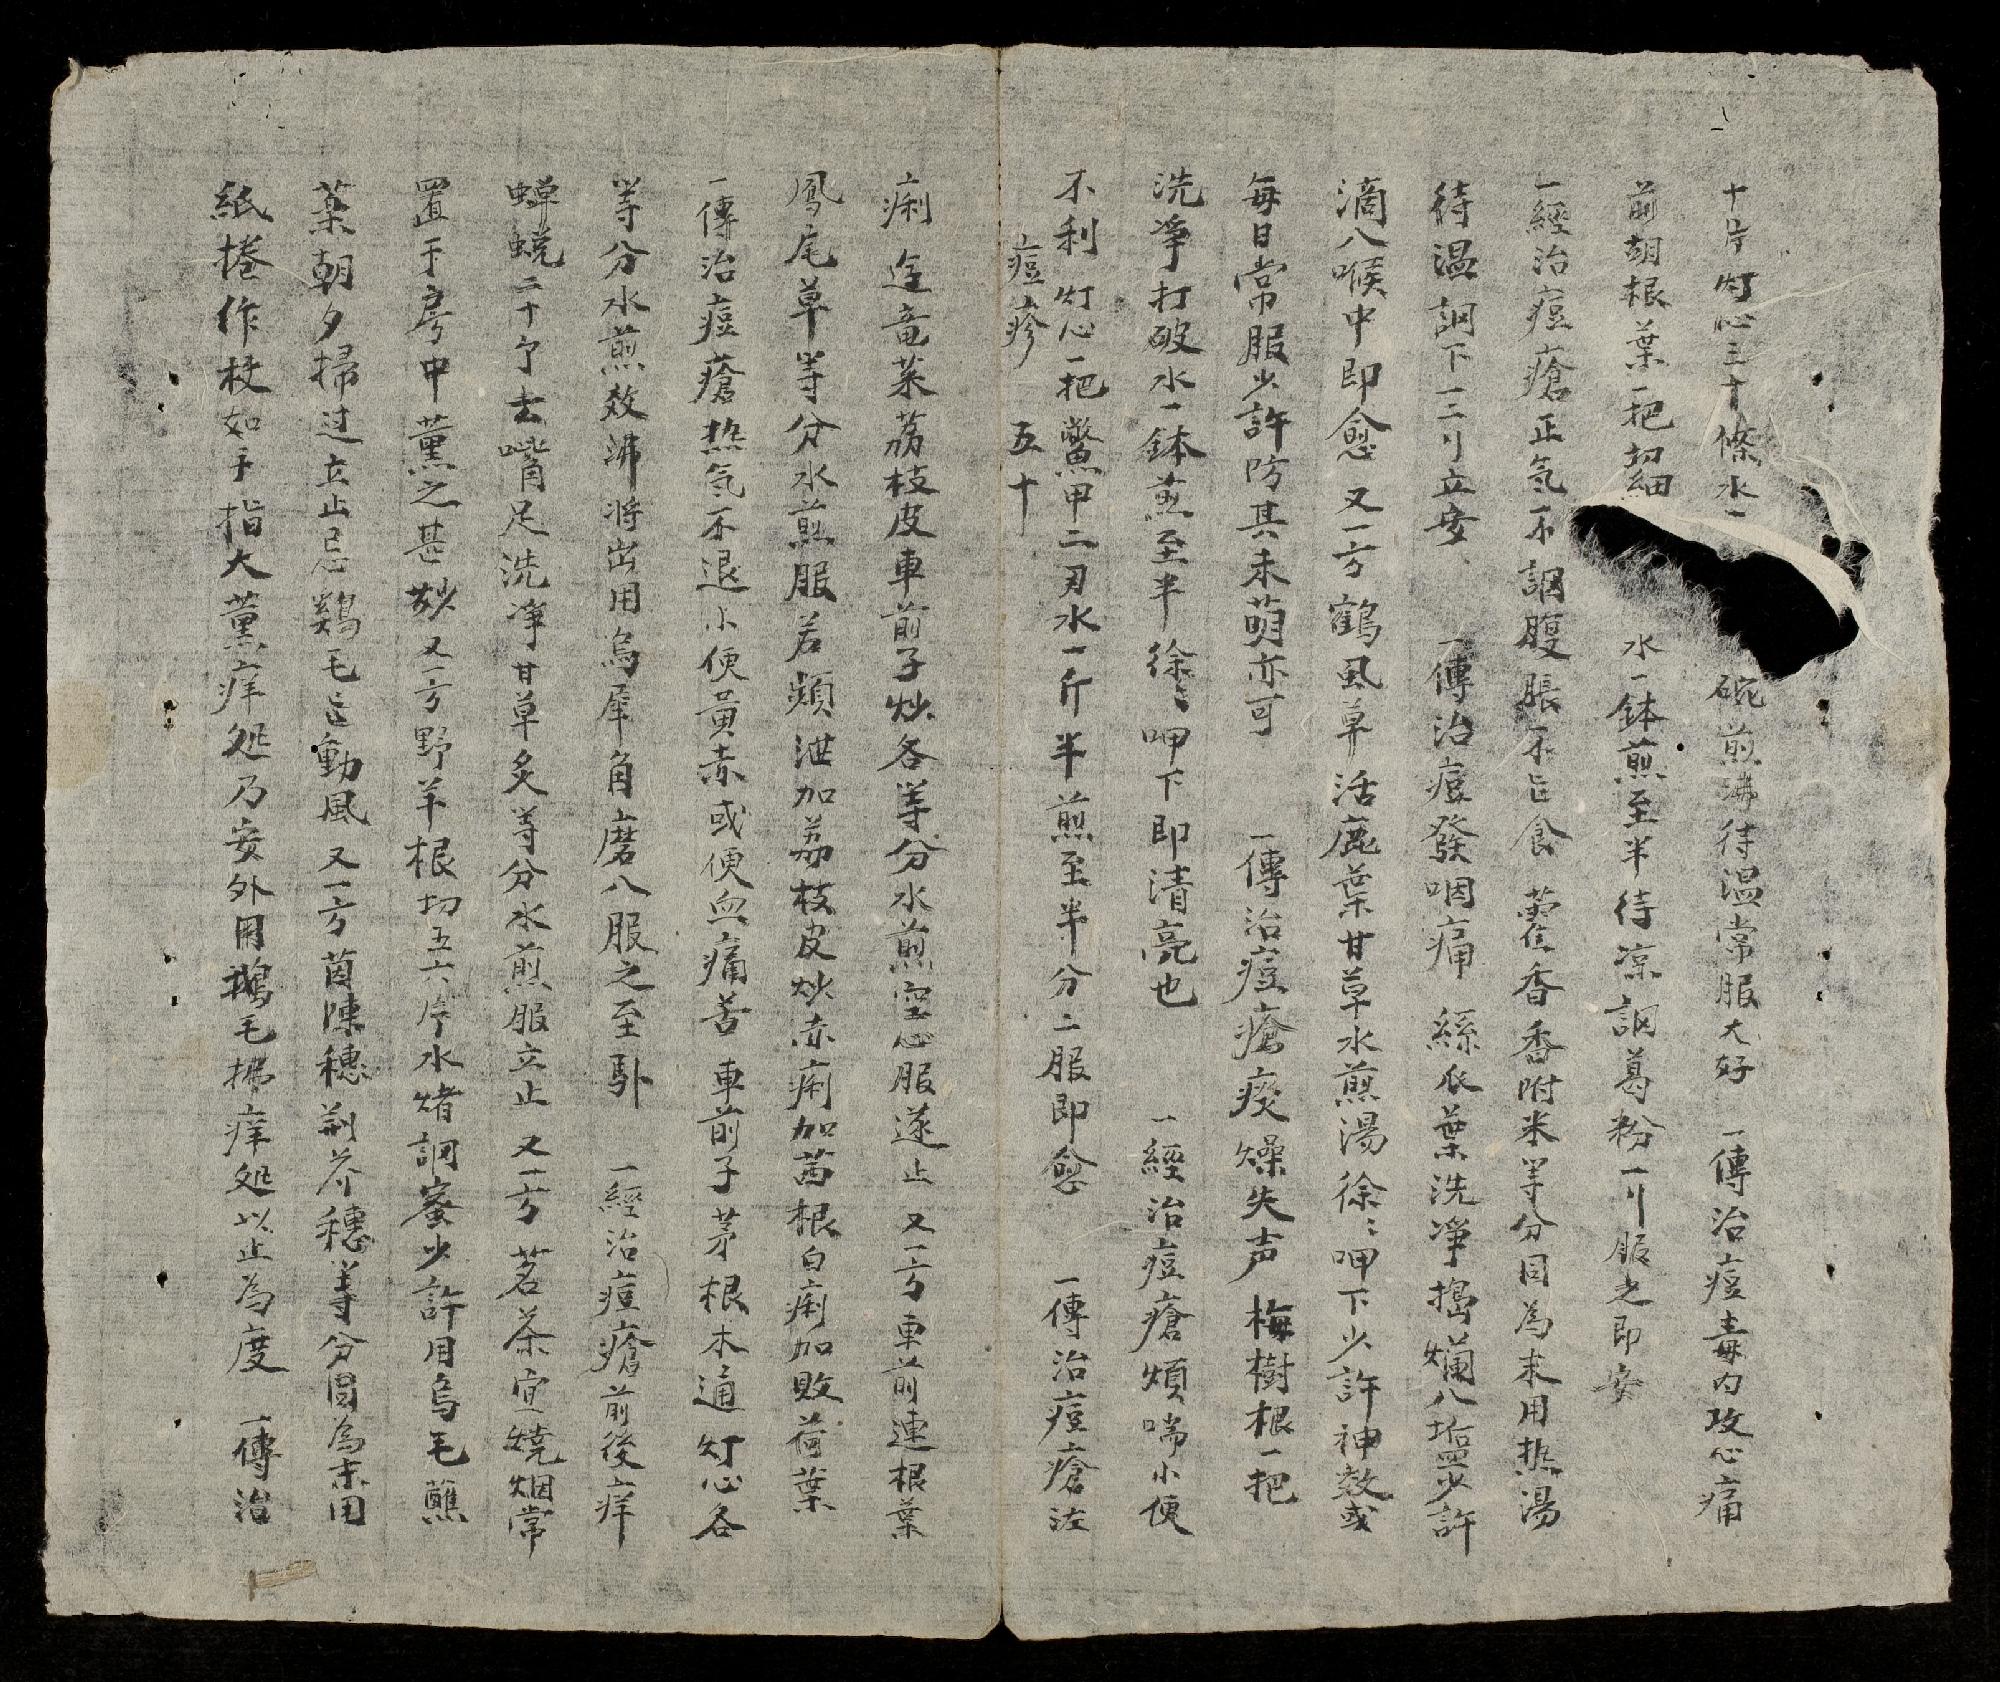 十片灯心三十條水一碗煎沸待温常服大好 一傳治痘毒内攻心痛
前胡根葉一把切細水一鉢煎至半待凉調葛粉一刂服之即安
一經治痘瘡正氣不調腹脹不旨食 藿香香附米等分同為末用热湯
待温調下一二刂立安 一傳治痘發咽痛 絲瓜葉洗凈搗爛入塩少許
滴入喉中即愈 又一方鶴虱草活鹿葉甘草水煎湯徐〻呷下少許神效或
每日常服少許防其未萌亦可 一傳治痘瘡痰燥失声 梅樹根一把
洗凈打破水一鉢煎至半徐〻呷下即清亮也 一經治痘瘡煩喘小便
不利灯心一把鱉甲二刃水一斤半煎至半分二服即愈 一傳治痘瘡泄
痘疹 五十
痢 竜菜荔枝皮車前子炒各等分水煎空心服遂止 又一方車前連根葉
鳳尾草等分水煎服若頻泄加荔枝皮炒赤痢加茜根白痢加敗荷葉
一傳治痘瘡热氣不退小便黃赤或便血痛苦 車前子茅根木通灯心各
等分水煎数沸将出用烏犀角磨入服之至馿 一經治痘瘡前後痒
蝉蜕二十个去嘴足洗凈甘草炙等分水煎服立止 又一方茗茶宜燒烟常
置于房中薰之甚玅又一方野羊根切五六片水煮調蜜少許用烏毛蘸
葉朝夕掃过立止忌鷄毛旨動風 又一方茵陳穗荆芥穗等分同為末用
紙捲作杖如手指大薰痒処乃安外用鵝毛拂痒処以止為度 一傳治